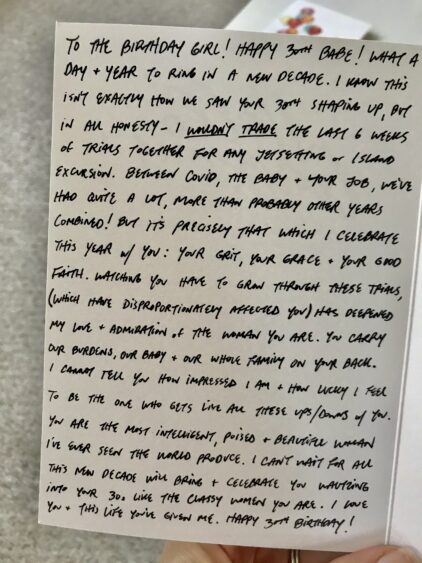 TO THE BIRTHDAY GIRL! HAPPY 30TH BABE! WHAT A
DAY + YEAR TO RING IN A NEW DECADE. I KNOW THIS
ISN'T EXACTLY HOW WE SAW YOUR 30TH SHAPING UP, BUT
IN ALL HONESTY - I WOULDN'T TRADE THE LAST 6 WEEKS
OF TRIALS TOGETHER FOR ANY JETSETTING OR ISLAND
EXCURSION. BETWEEN COVID, THE BABY + YOUR JOB, WE'VE
HAD QUITE A LOT, MORE THAN PROBABLY OTHER YEARS
COMBINED! BUT IT'S PRECISELY THAT WHICH I CELEBRATE
THIS YEAR W/ YOU: YOUR GRIT, YOUR GRACE + YOUR GOOD
FAITH. WATCHING YOU HAVE TO GROW THROUGH THESE TRIALS,
(WHICH HAVE DISPROPORTIONATELY AFFECTED YOU) HAS DEEPENED
MY LOVE + ADMIRATION OF THE WOMAN YOU ARE. YOU CARRY
OUR BURDENS, OUR BABY + OUR WHOLE FAMILY ON YOUR BACK.
I CANNOT TELL YOU HOW IMPRESSED I AM + HOW LUCKY I FEEL
TO BE THE ONE WHO GETS LIVE ALL THESE UPS/DOWNS W/ YOU.
YOU ARE THE MOST INTELLIGENT, POISED + BEAUTIFUL WOMAN
I'VE EVER SEEN THE WORLD PRODUCE. I CAN'T WAIT FOR ALL
THIS NEW DECADE WILL BRING + CELEBRATE YOU WALTZING
INTO YOUR 30s LIKE THE CLASSY WOMEN YOU ARE. I LOVE
YOU + THIS LIFE YOU'VE GIVEN ME. HAPPY 30TH BIRTHDAY!